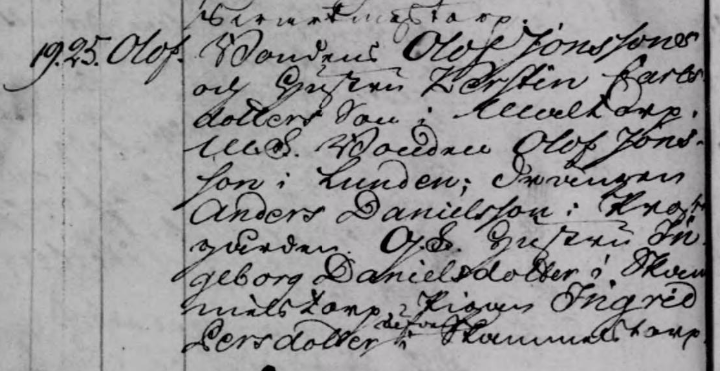 19. 25. Olof. Bondens Olof Jönssons
och Hustru Kerstin Carls-
dotters Son i
M.S. Bonden Olof Jöns-
son i Lunden; Drängen
Anders Danielsson i Prost-
gården. Q.S. Hustru In-
geborg Danielsdotter i Skam-
melstorp, Pigan Ingrid
Persdotter i Skammelstorp.